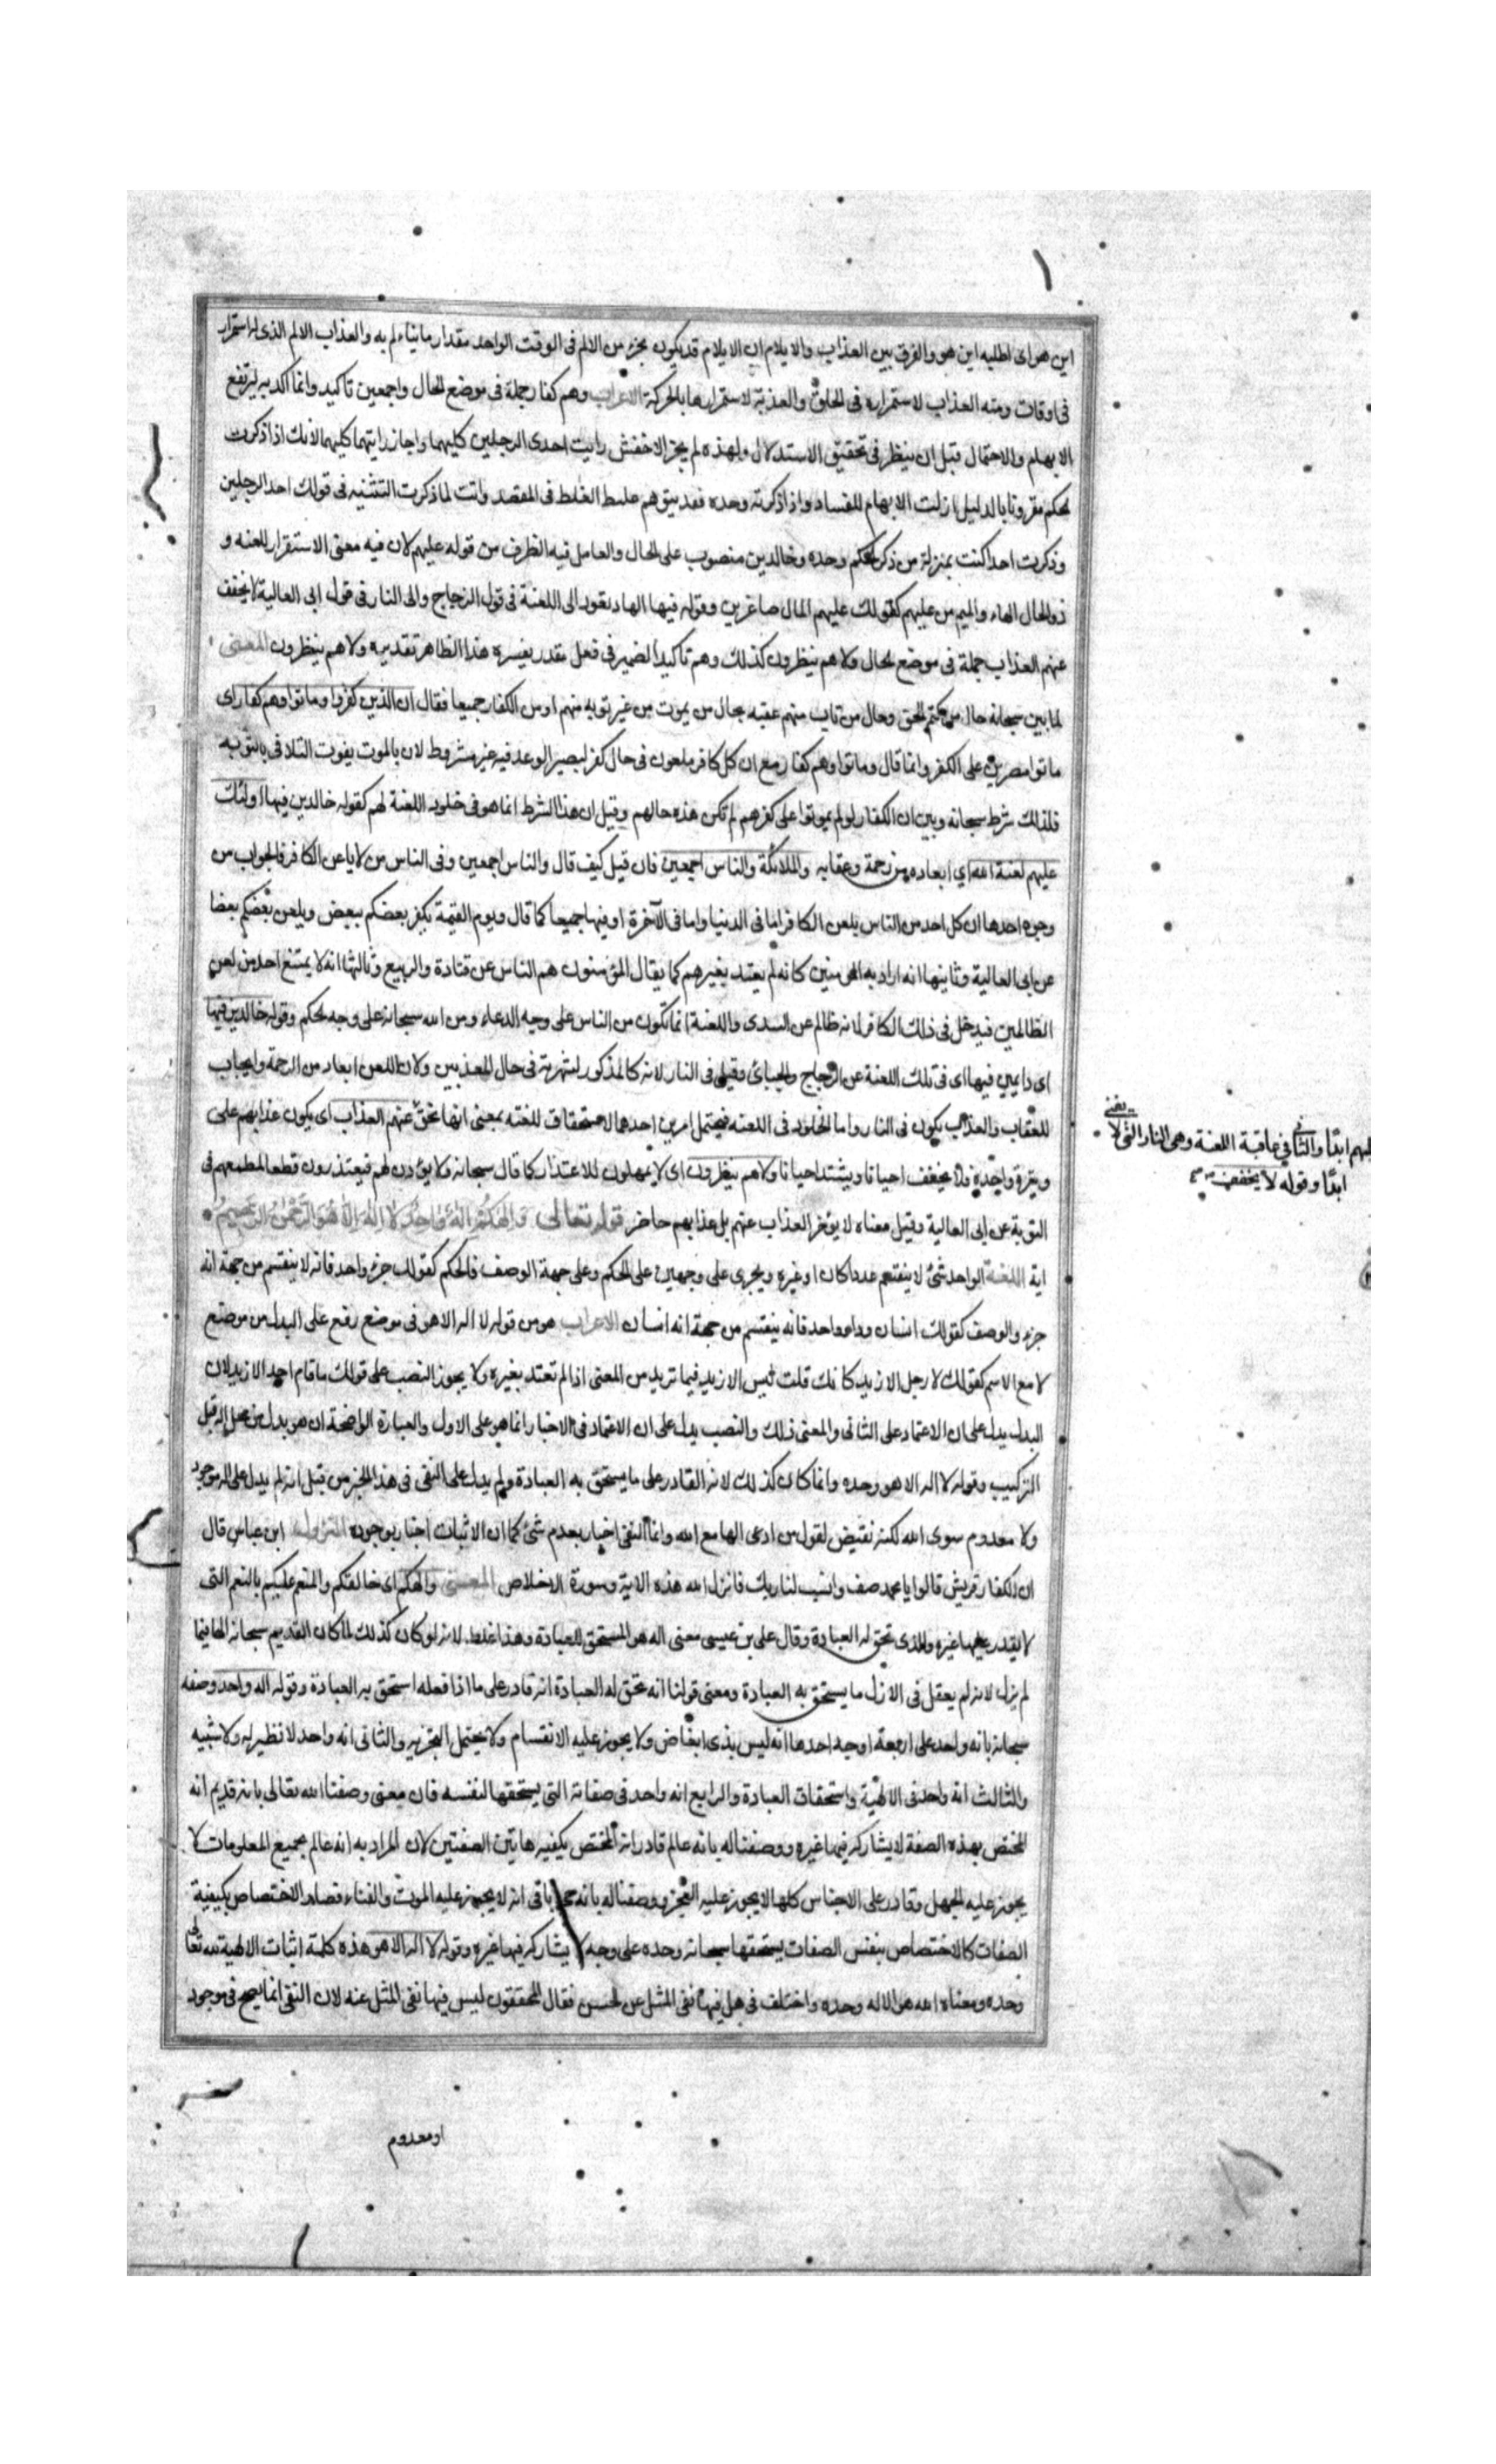 اين هو اى اطلبه اين هو والفرق بين العذاب والايلام ان الايلام قد يكون بجزء من الالم فى الوقت الواحد مقدار ما يتاءلم به والعذاب الالم الذى له استمرار
فى اوقات ومنه العذاب لاستمراره فى الحلق والعذبة لاستمرارها بالحركة الاعراب وهم كفار جملة فى موضع الحال واجمعين تاكيد وانما اكد به ليرتفع
الايهام والاحتمال قبل ان ينظر فى تحقيق الاستدلال ولهذه لم يجز الاخفش رايت احدى الرجلين كليهما واجاز رايتهما كليهما لانك اذا ذكرت
الحكم مقرونا بالدليل ازلت الابهام للفساد واذا ذكرته وحده فقد يتوهم عليك الغلط فى المقصد وانت لما ذكرت التثنيه فى قولك احد الرجلين
وذكرت احدا كنت بمنزلة من ذكر الحكم وحده وخالدين منصوب على الحال والعامل فيه الظرف من قوله عليهم لان فيه معنى الاستقرار للعنه و
ذو الحال الهاء والميم من عليهم كقولك عليهم المال صاغرين وقوله فيها الهاء يعود الى اللعنة فى قول الزجاج والى النار فى قول ابى العالية لا يخفف
عنهم العذاب جملة فى موضع الحال ولا هم ينظرون كذلك وهم تاكيد لضمير فى فعل مقدر يفسره هذا الظاهر تقديره ولا هم ينظرون المعنى
لما بين سبحانه حال من كتم الحق وحال من تاب منهم عقبه بحال من يموت من غير توبه منهم او من الكفار جميعا فقال ان الذين كفروا وماتوا وهم كفار اى
ماتوا مصرين على الكفر وانما قال وماتوا وهم كفار مع ان كل كافر ملعون فى حال كفره ليصير الوعد فيه غير مشروط لان بالموت يفوت التلافى بالتوبه
فلذلك شرط سبحانه وبين ان الكفار لو لم يموتوا على كفرهم لم تكن هذه حالهم وقيل ان هذا الشرط انما هو فى خلود اللعنة لهم كقوله خالدين فيها اولئك
عليهم لعنة الله اي ابعاده من رحمة وعقابه والملائكة والناس اجمعين فان قيل كيف قال والناس اجمعين وفى الناس من لا يلعن الكافر فالجواب من
وجوه احدها ان كل احد من الناس يلعن الكافر اما فى الدنيا واما فى الآخرة او فيهما جميعا كما قال ويوم القيمة يكفر بعضكم ببعض ويلعن بعضكم بعضا
عن ابى العالية وثانيها انه اراد به المؤمنين كانه لم يعتد بغيرهم كما يقال المؤمنون هم الناس عن قتادة والربيع وثالثها انه لا يمتنع احد من لعن
الظالمين فيدخل فى ذلك الكافر لانه ظالم عن السدى واللعنة انما تكون من الناس على وجه الدعاء ومن الله سبحانه على وجه الحكم وقوله خالدين فيها
اى دايمين فيها اى فى تلك اللعنة عن الزجاج والجبائى وقيل فى النار لانه كالمذكور لشهرته فى حال المعذبين ولان اللعن ابعاد من الرحمة وايجاب
للعقاب والعذاب يكون فى النار واما الخلود فى اللعنه فيحتمل امرين احدهما الاستحقاق للعنه بمعنى انها تحق عنهم العذاب اى يكون عذابهم على
وتيرة واحدة ولا يخفف احيانا ويشتد احيانا ولا هم ينظرون اى لا يمهلون للاعتذار كما قال سبحانه ولا يؤذن لهم فيعتذرون قطعا لطمعهم فى
التوبة عن ابى العالية وقيل معناه لا يؤخر العذاب عنهم بل عذابهم حاضر قوله تعالى وَالهكُم اِلهٌ وَاحِدٌ لا اِلهَ اِلّا هُوَ الرَّحْمنُ الرَّحِيمُ
اية اللغة الواحد شئ لا ينقسم عددا كان او غيره ويجرى على وجهين على الحكم وعلى جهة الوصف فالحكم كقولك جزء واحد فانه لا ينقسم من جهة انه
جزء والوصف كقولك انسان واحد فانه ينقسم من جهة انه انسان الاعراب هو من قوله لا اله الا هو فى موضع رفع على البدل من موضع
لا مع الاسم كقولك لا رجل الا زيد كانك قلت ليس الا زيد فيما تريد من المعنى اذا لم تعتد بغيره ولا يجوز النصب على قولك ما قام احد الا زيد لان
البدل يدل على ان الاعتماد على الثانى والمعنى ذلك والنصب يدل على ان الاعتماد فى الاخبار انما هو على الاول والعبارة الواضحة ان هو بدل من محل اله قبل
التركيب وقوله لا اله الا هو وحده وانما كان كذلك لانه القادر على ما يستحق به العبادة ولم يدل على النفى فى هذا الخبر من قبل انه لم يدل على اله موجود
ولا معدوم سوى الله لكنه نقيض لقول من ادعى الها مع الله وانما النفى اخبار بعدم شئ كما ان الاثبات اخبار بوجوده النزول ابن عباس قال
ان كفار قريش قالوا يا محمد صف وانسب لنا ربك فانزل الله هذه الاية وسورة الاخلاص المعنى والهكم اى خالقكم والمنعم عليكم بالنعم التى
لا يقدر عليها غيره والذى تحق له العبادة وقال على بن عيسى معنى اله هو المستحق للعبادة وهذا غلط لانه لو كان كذلك لما كان القديم سبحانه الها فيما
لم يزل لانه لم يعقل فى الازل ما يستحق به العبادة ومعنى قولنا انه تحق له العبادة انه قادر على ما اذا فعله استحق به العبادة وقوله اله واحد وصفه
سبحانه بانه واحد على اربعة اوجه احدها انه ليس بذى ابعاض ولا يجوز عليه الانقسام ولا يحتمل التجزيه والثانى انه واحد لا نظير له ولا شبيه
والثالث انه واحد فى الالهية واستحقاق العبادة والرابع انه واحد فى صفاته التى يستحقها لنفسه فان معنى وصفنا الله تعالى بانه قديم انه
المختص بهذه الصفة لا يشاركه فيها غيره ووصفنا له بانه عالم قادر انه المختص بكيفيه هاتين الصفتين لان المراد به انه عالم بجميع المعلومات لا
يجوز عليه الجهل وقادر على الاجناس كلها لا يجوز عليه العجز ووصفنا له بانه باقى انه لا يجوز عليه الموت والفناء فصار الاختصاص بكيفية
الصفات كالاختصاص بنفس الصفات يستحقها سبحانه وحده على وجه لا يشاركه فيها غيره وقوله لا اله الا هو هذه كلمة اثبات الالهية لله تعالى
وحده ومعناه الله هو الاله وحده واختلف فى هل فيها نفى المثل عن الحسن فقال المحققون ليس فيها نفى المثل عنه لان النفى انما يصح فى موجود
او معدوم
يعنى
ابدًا والثانى فى عاقبة اللعنة وهى النار التى لا
ابدًا وقوله لا يخفف